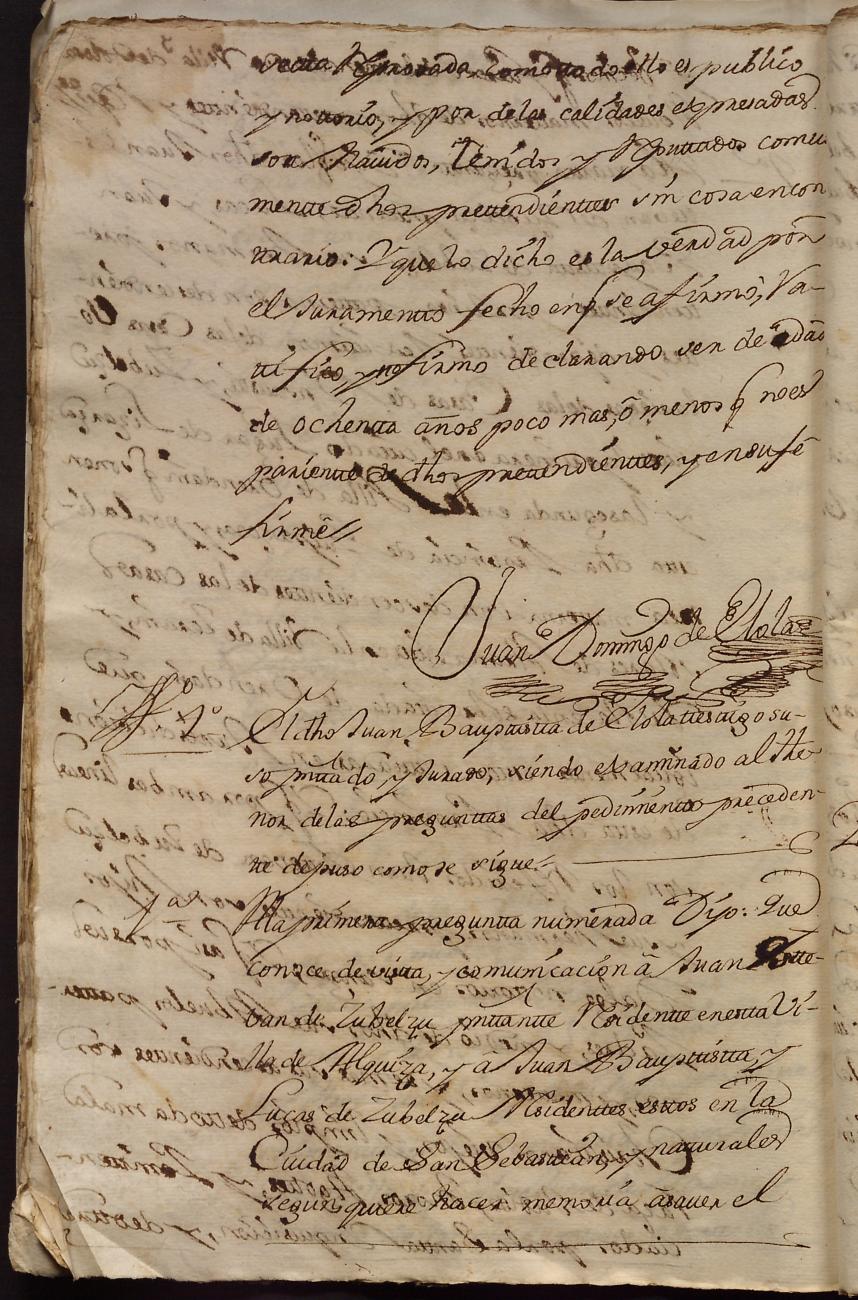 vecta Reprovada, como todo ello es publico
y nottorio, y por de las calidades expresadas
son Havidos, Tenidos y Reputtados comun
mente dhos prettendienttes sin cosa encon
trario: Y que lo dicho es la verdad por
el Juramento fecho en q se afirmó, Ra-
tifico, y no firmo declarando ser de edad
de ochenta años poco mas, ô menos q no es
pariente de dhos prettendienttes, y en su fé
firmê
Juan Domingo de Elola
Tº 2º
El dho Juan Bauptista de Elola testigo su-
so prittado y Jurado, siendo examinado al the-
nor de las preguntas del pedimiento preceden-
te depuso como se sigue
1ª
A la primera pregunta numerada Dijo: Que
conoce de vista, y comunicacion â Juan Este-
van de Zubelzu prittante Residente en esta Vi-
lla de Alquiza, y â Juan Bauptista, y
Lucas de Zubelzu Residenttes esttos en la
Ciudad de San Sebastian, y naturales
segun quiere hacer memoria â saver el